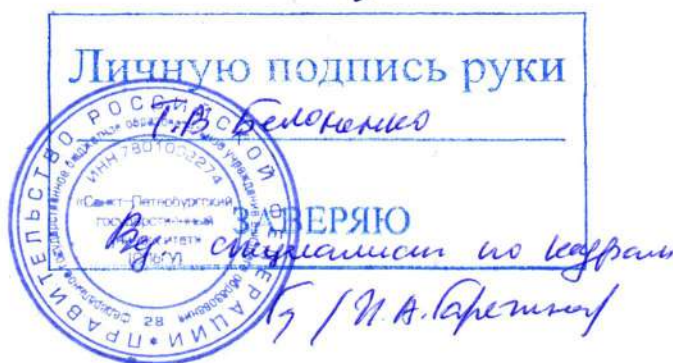 Личную подпись руки
Т.В. Белоненко
ЗАВЕРЯЮ
Вед. специалист по кадрам
/ И.А. Гаретина /
ПРАВИТЕЛЬСТВО РОССИЙСКОЙ ФЕДЕРАЦИИ
ИНН 7801002274
«Санкт-Петербургский
государственный
университет»
(СПбГУ)
28